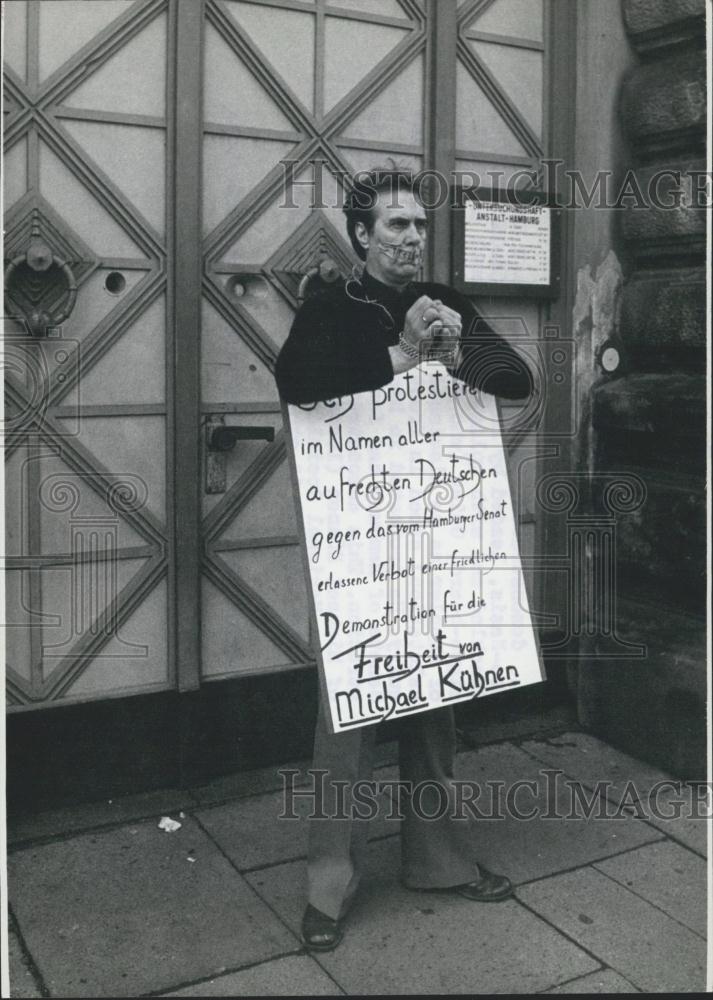 UNTERSUCHUNGSHAFT-
ANSTALT-HAMBURG
Ich protestiere
im Namen aller
aufrechten Deutschen
gegen das vom Hamburger Senat
erlassene Verbot einer friedlichen
Demonstration für die
Freiheit von
Michael Kühnen
HISTORIC IMAGES
HISTORIC IMAGES